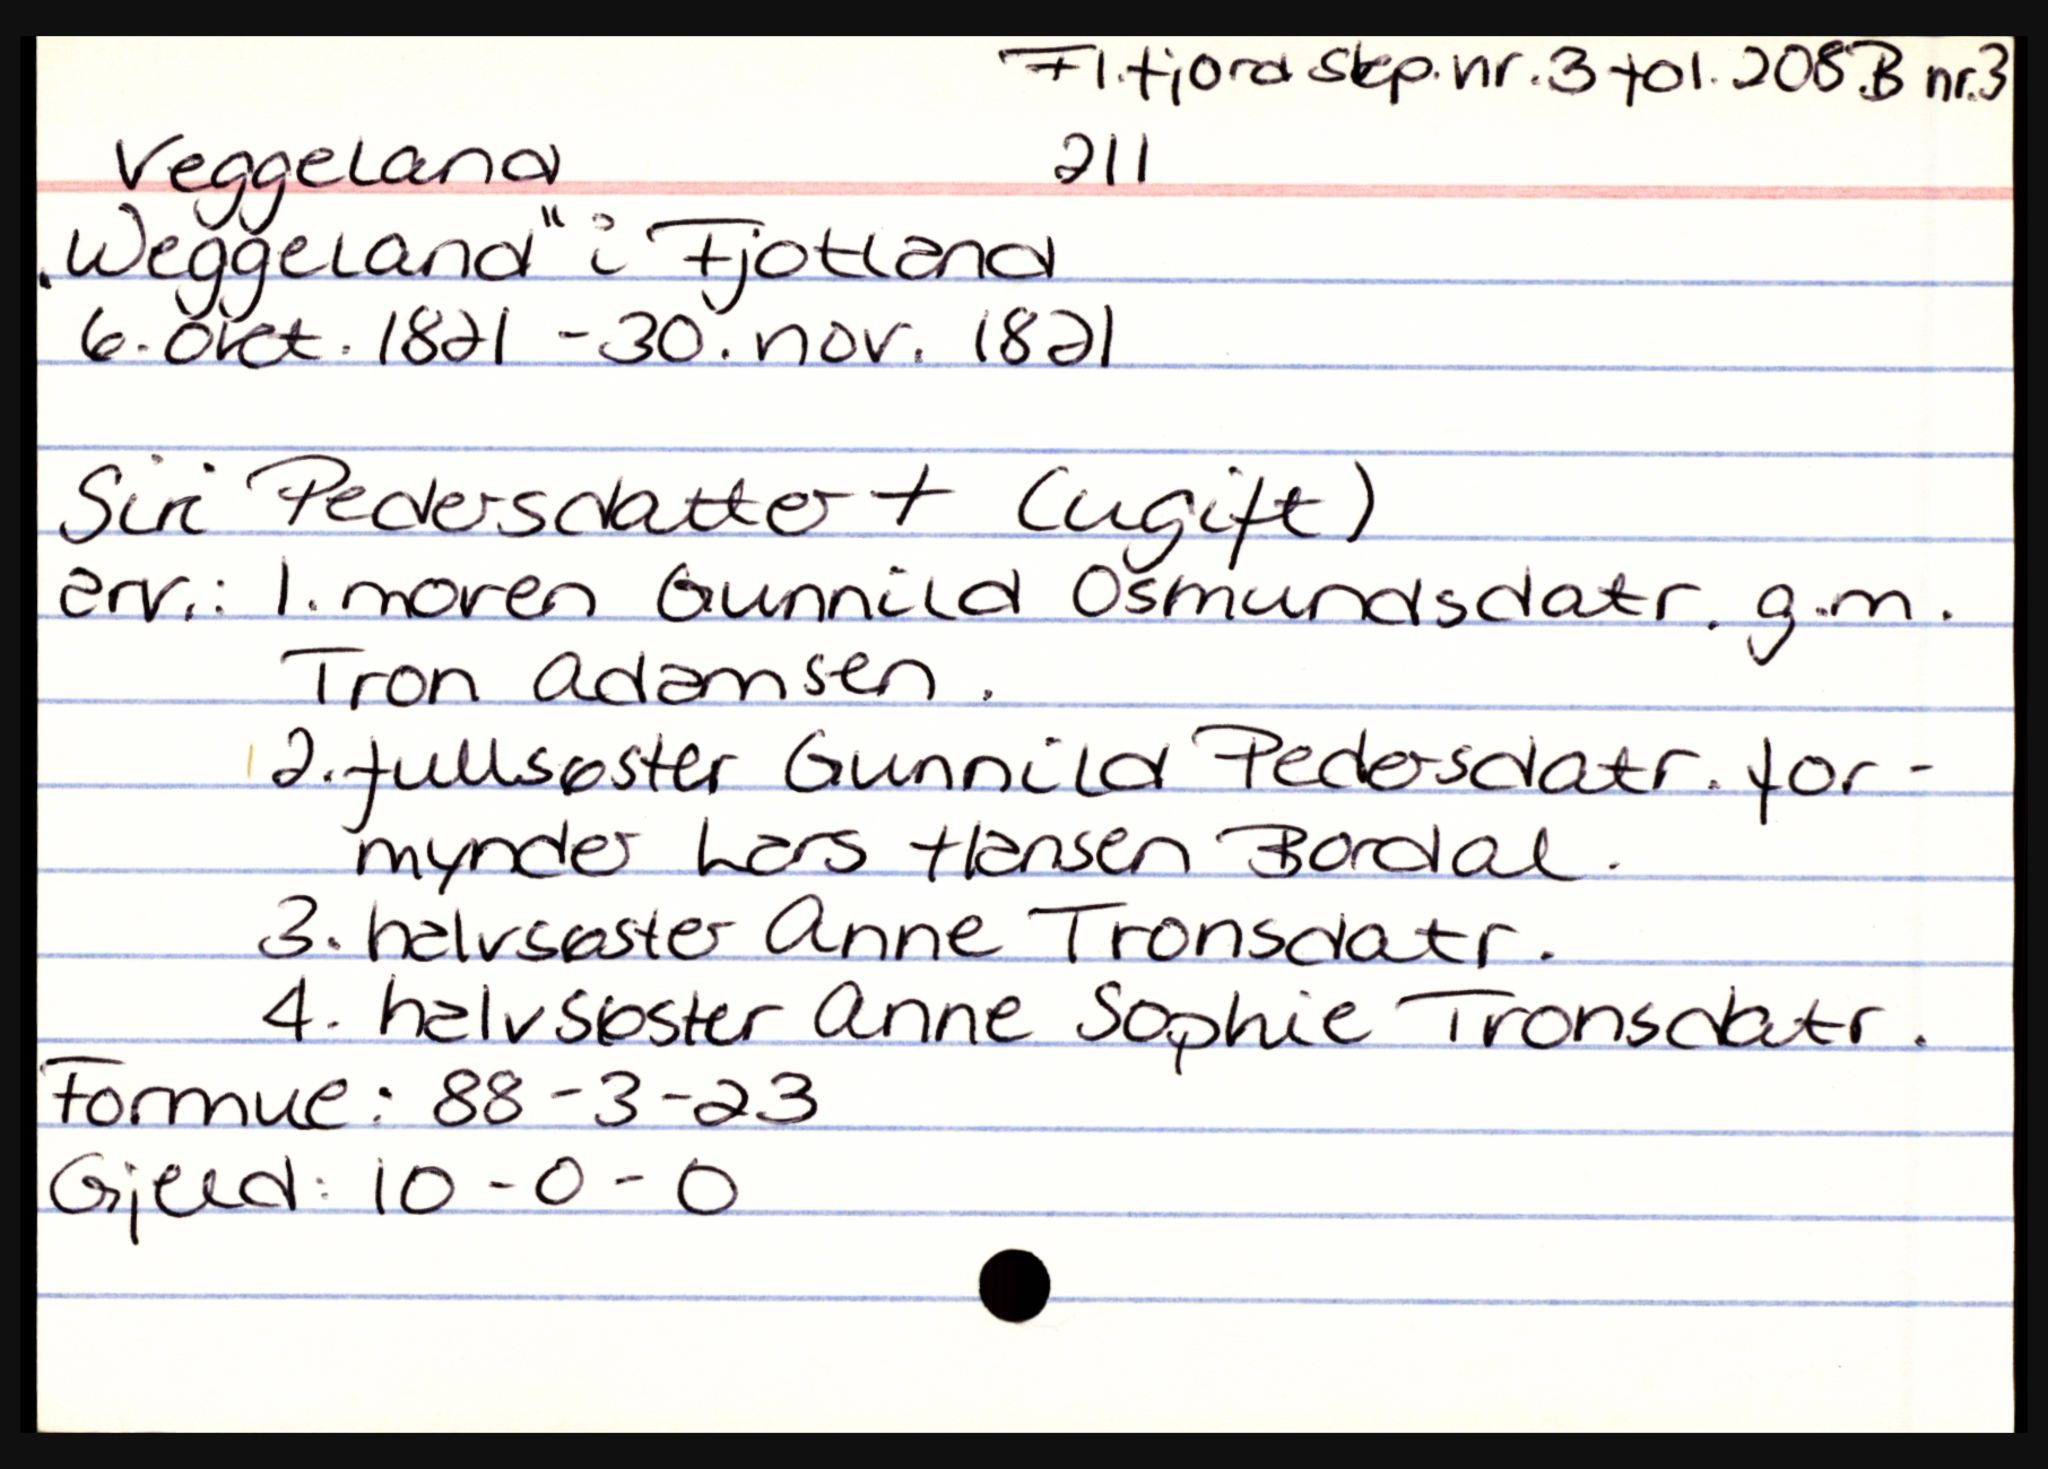 Fl.fjord skp. nr. 3 fol. 208B nr.3
Veggeland 211
„Weggeland" i Fjotland
6. okt. 1821 - 30. nov. 1821
Siri Pedersdatter + (ugift)
arv.: 1. moren Gunnild Osmundsdatr. g.m.
Tron Adamsen.
2. fullsøster Gunnild Pedersdatr. for-
mynder Lars Hansen Bordal.
3. halvsøster Anne Tronsdatr.
4. halvsøster Anne Sophie Tronsdatr.
Formue: 88-3-23
Gjeld: 10-0-0